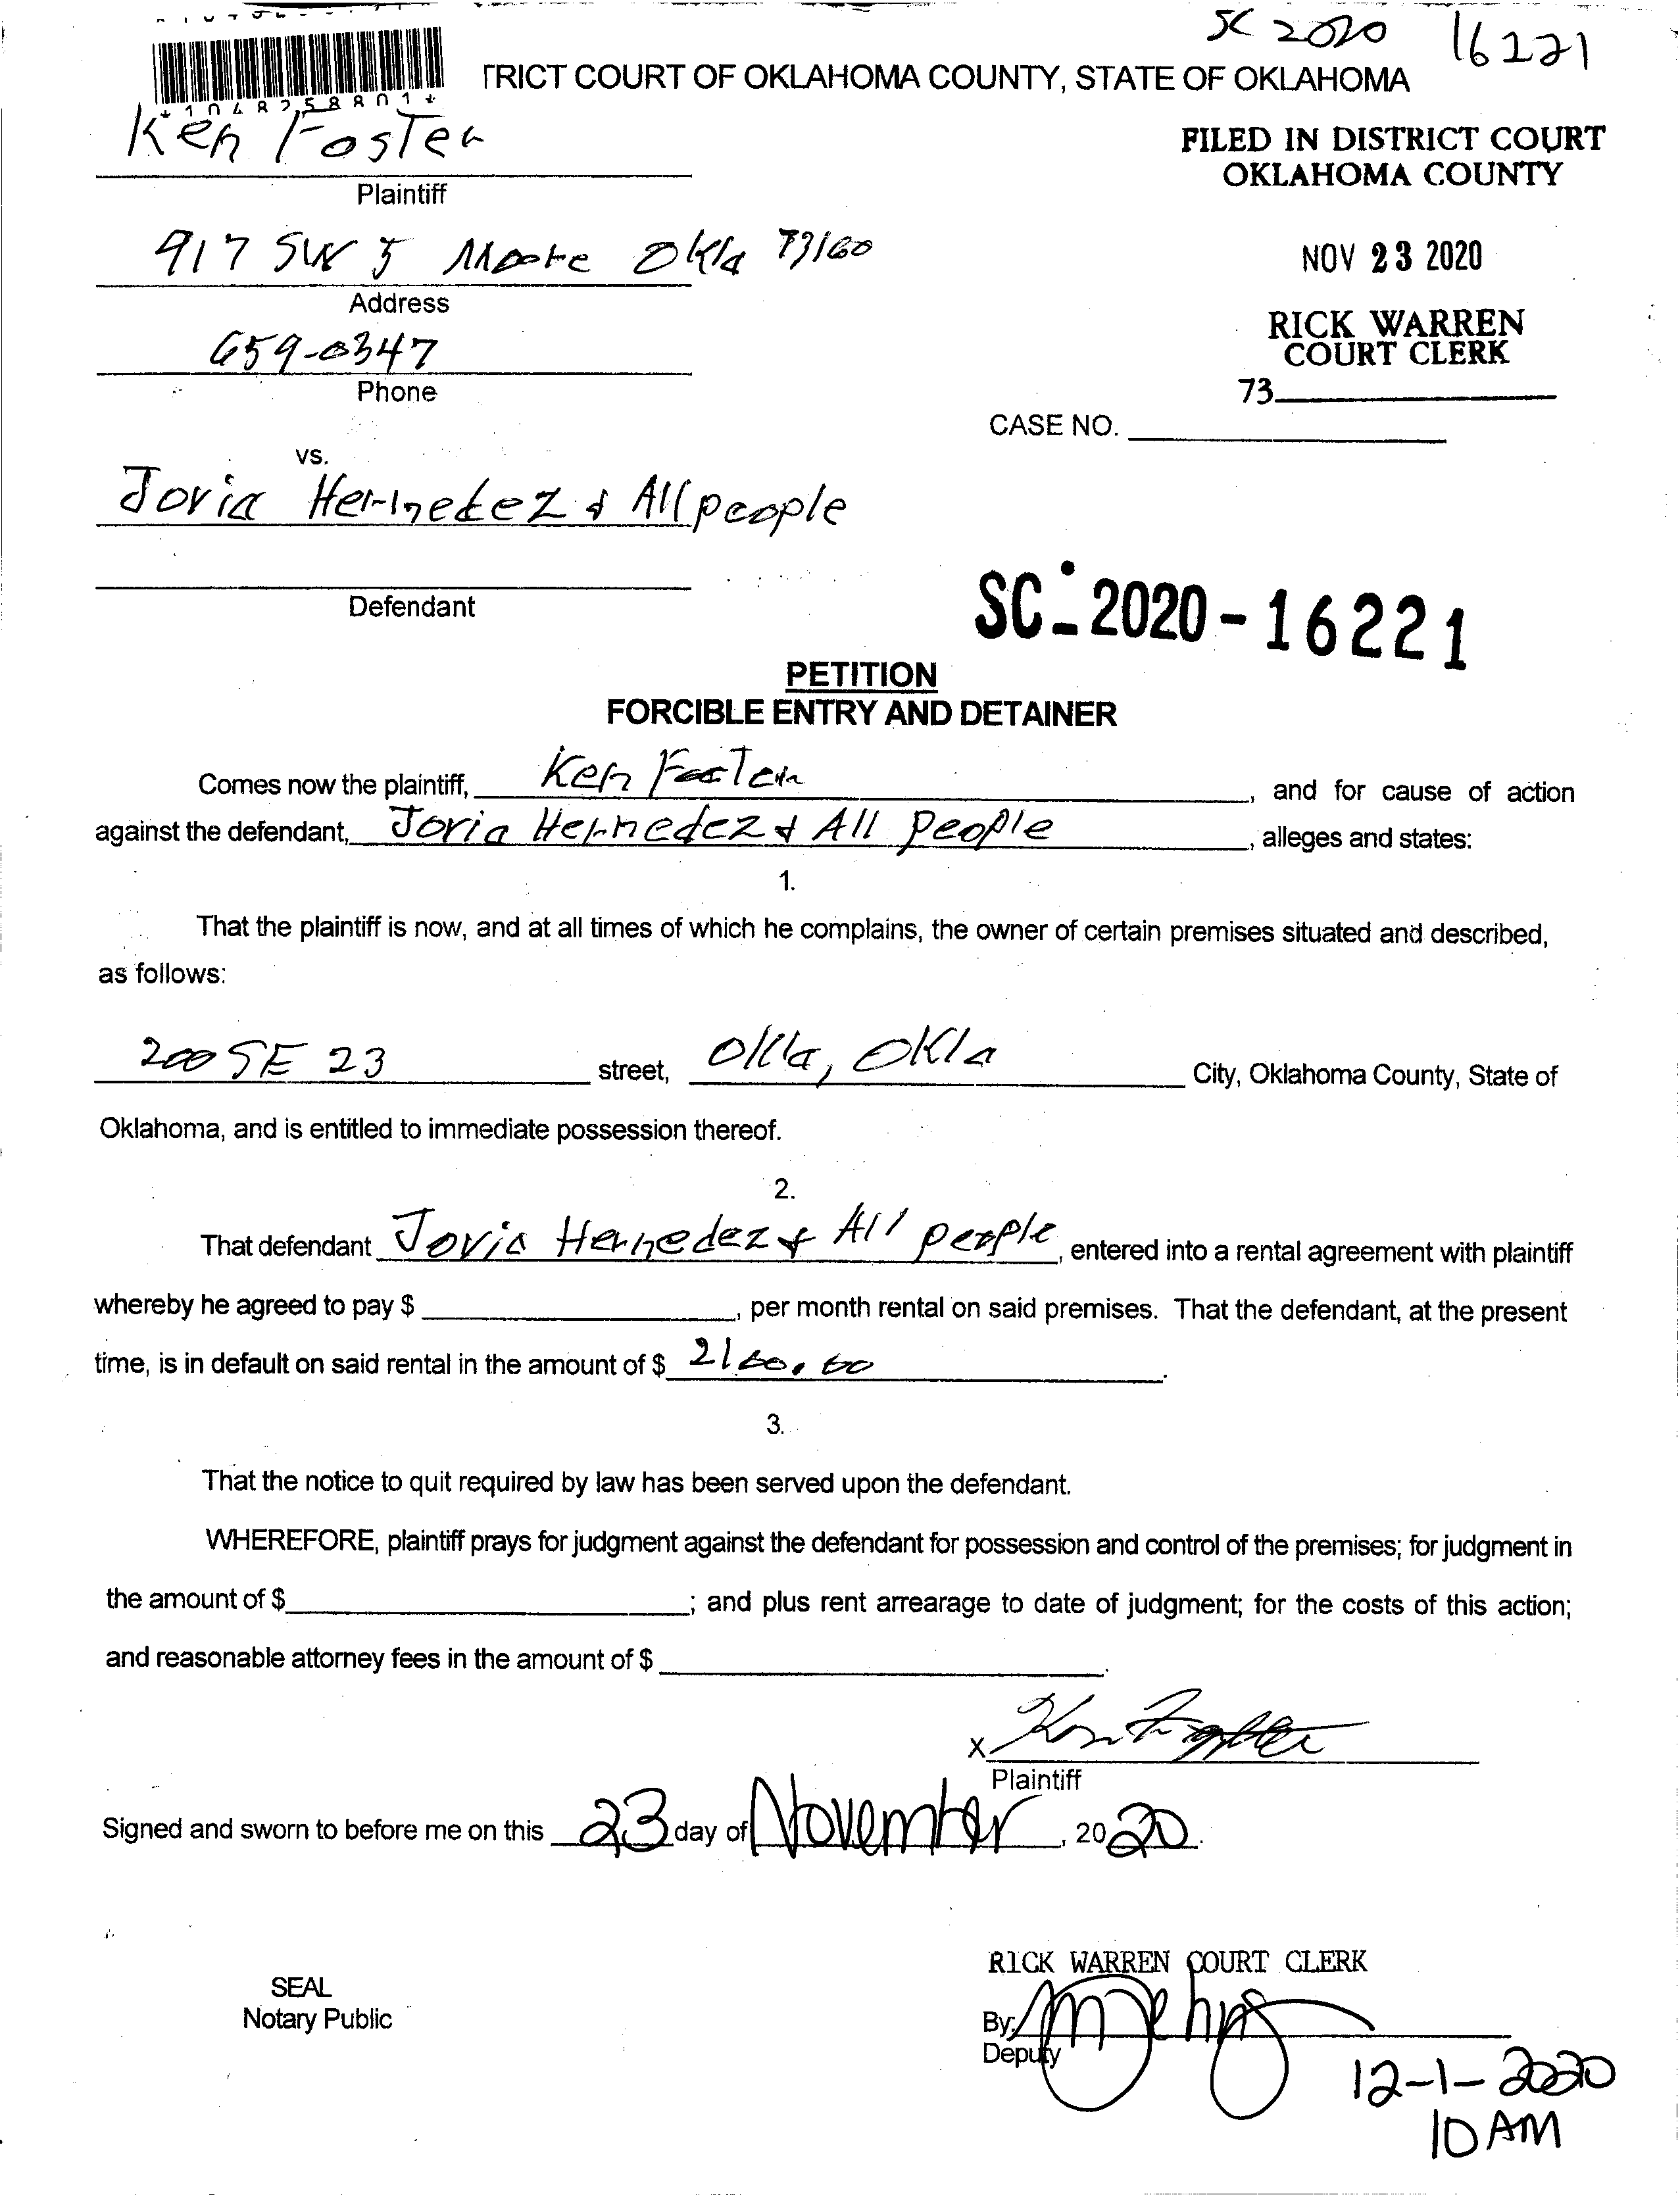 SC 2020 16221
TRICT COURT OF OKLAHOMA COUNTY, STATE OF OKLAHOMA
*1048258801*
Ken Foster
Plaintiff
FILED IN DISTRICT COURT
OKLAHOMA COUNTY
917 SW 5 Moore Okla 73160
Address
NOV 23 2020
659-0347
Phone
RICK WARREN
COURT CLERK
73
CASE NO.
vs.
Joria Hernedez & All people
Defendant
SC-2020-16221
PETITION
FORCIBLE ENTRY AND DETAINER
Comes now the plaintiff, Ken Foster, and for cause of action
against the defendant, Joria Hernedez & All people, alleges and states:
1.
That the plaintiff is now, and at all times of which he complains, the owner of certain premises situated and described,
as follows:
200 SE 23 street, Okla, Okla City, Oklahoma County, State of
Oklahoma, and is entitled to immediate possession thereof.
2.
That defendant Joria Hernedez & All people, entered into a rental agreement with plaintiff
whereby he agreed to pay $, per month rental on said premises. That the defendant, at the present
time, is in default on said rental in the amount of $ 2100.00.
3.
That the notice to quit required by law has been served upon the defendant.
WHEREFORE, plaintiff prays for judgment against the defendant for possession and control of the premises; for judgment in
the amount of $; and plus rent arrearage to date of judgment; for the costs of this action;
and reasonable attorney fees in the amount of $.
x Ken Foster
Plaintiff
Signed and sworn to before me on this 23 day of November, 2020.
SEAL
Notary Public
RICK WARREN COURT CLERK
By:
Deputy
12-1-2020
10 AM